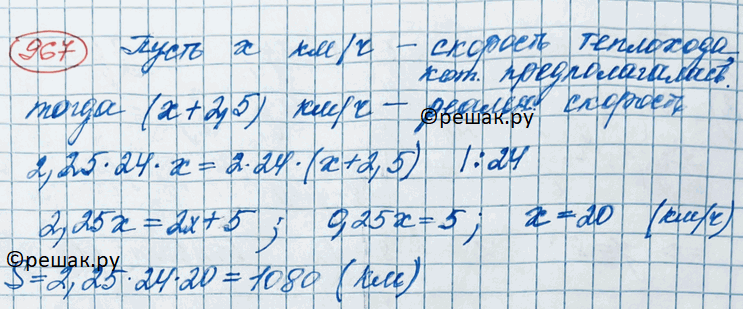 967 Пусть x км/ч – скорость теплохода,
кот. предполагалась.
тогда (x+2,5) км/ч – реальн. скорость
©решак.ру
2,25·24·x=2·24·(x+2,5) |:24
2,25x=2x+5; 0,25x=5; x=20 (км/ч)
©решак.ру
S=2,25·24·20=1080 (км)